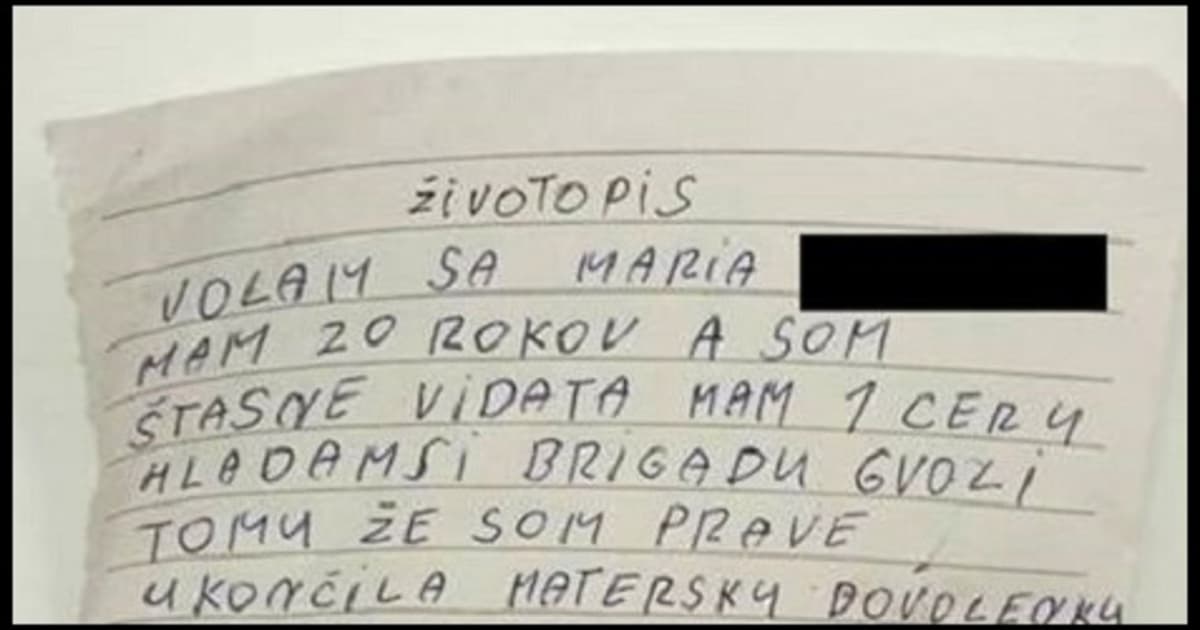 ŽiVOTOPiS
VOLAM SA MARiA
MAM 20 ROKOV A SOM
ŠTASNE ViDATA MAM 1 CERU
HLADAMSi BRiGADU GVOLi
TOMU ŽE SOM PRAVE
UKONČiLA MATERSKU DOVOLENKU